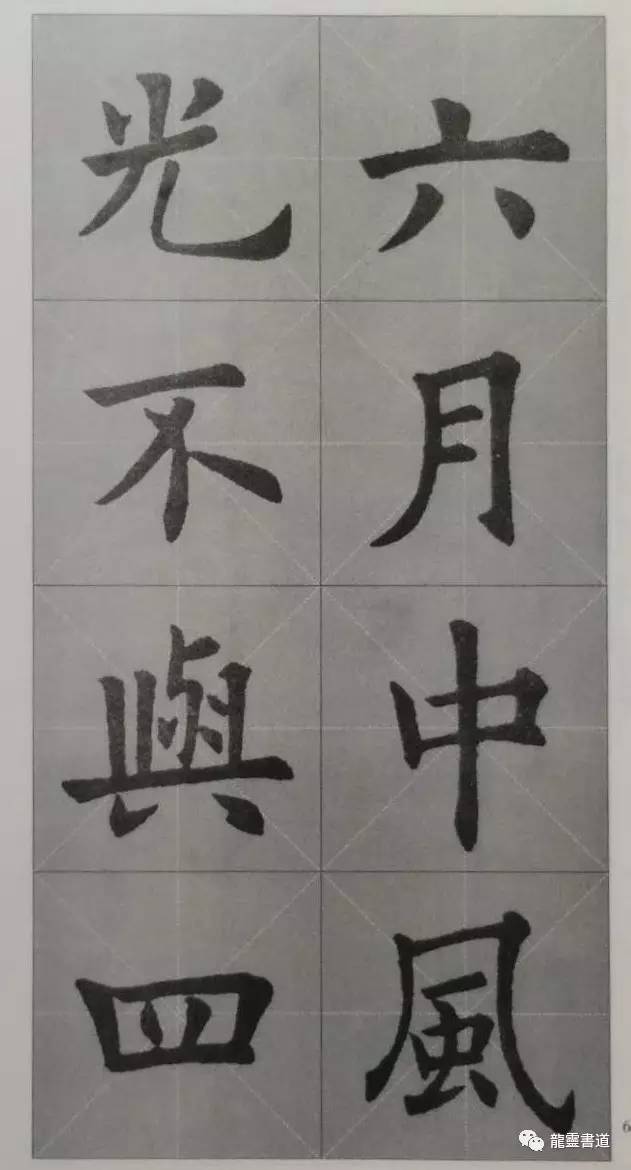 六月中風
光不與四
6
龍靈書道